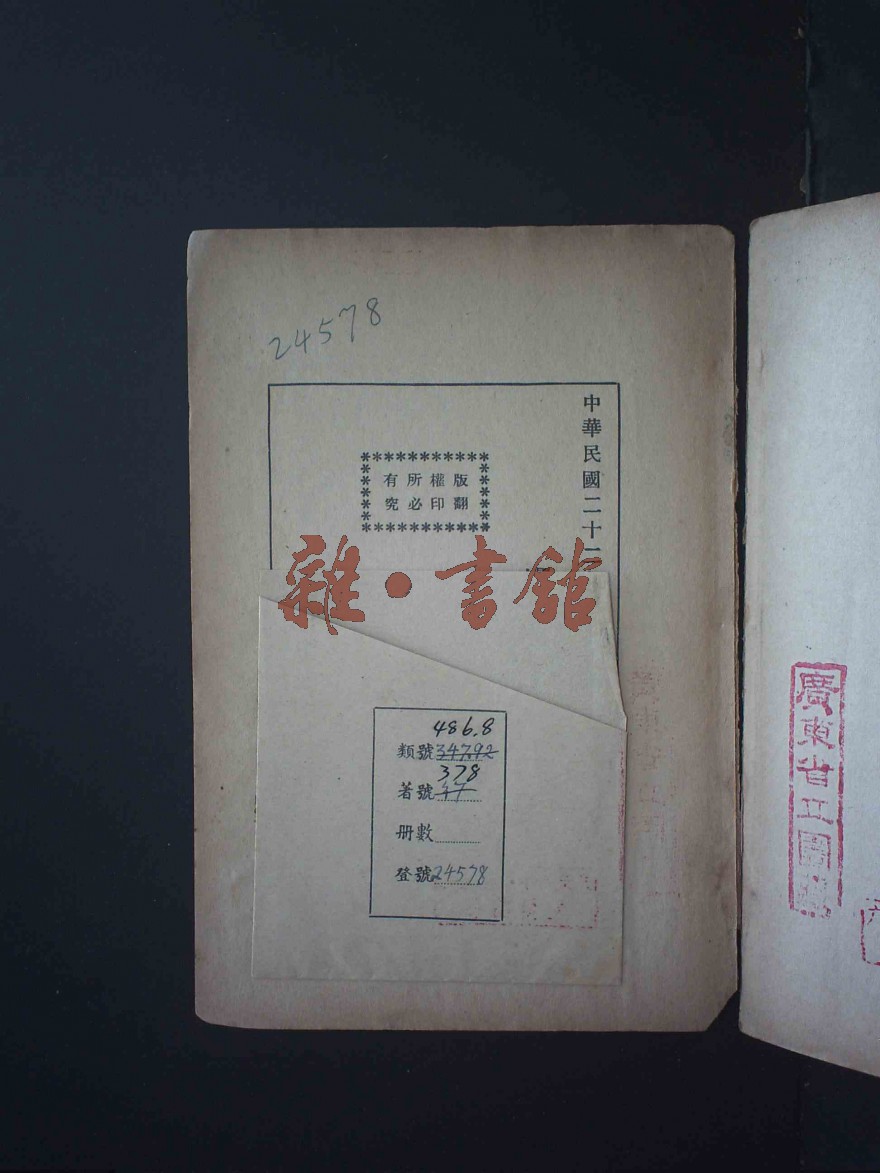 24578
中華民國二十
版權所有
翻印必究
雜·書館
486.8
類號 34792
378
著號 47
册數
登號 24578
廣東省立圖